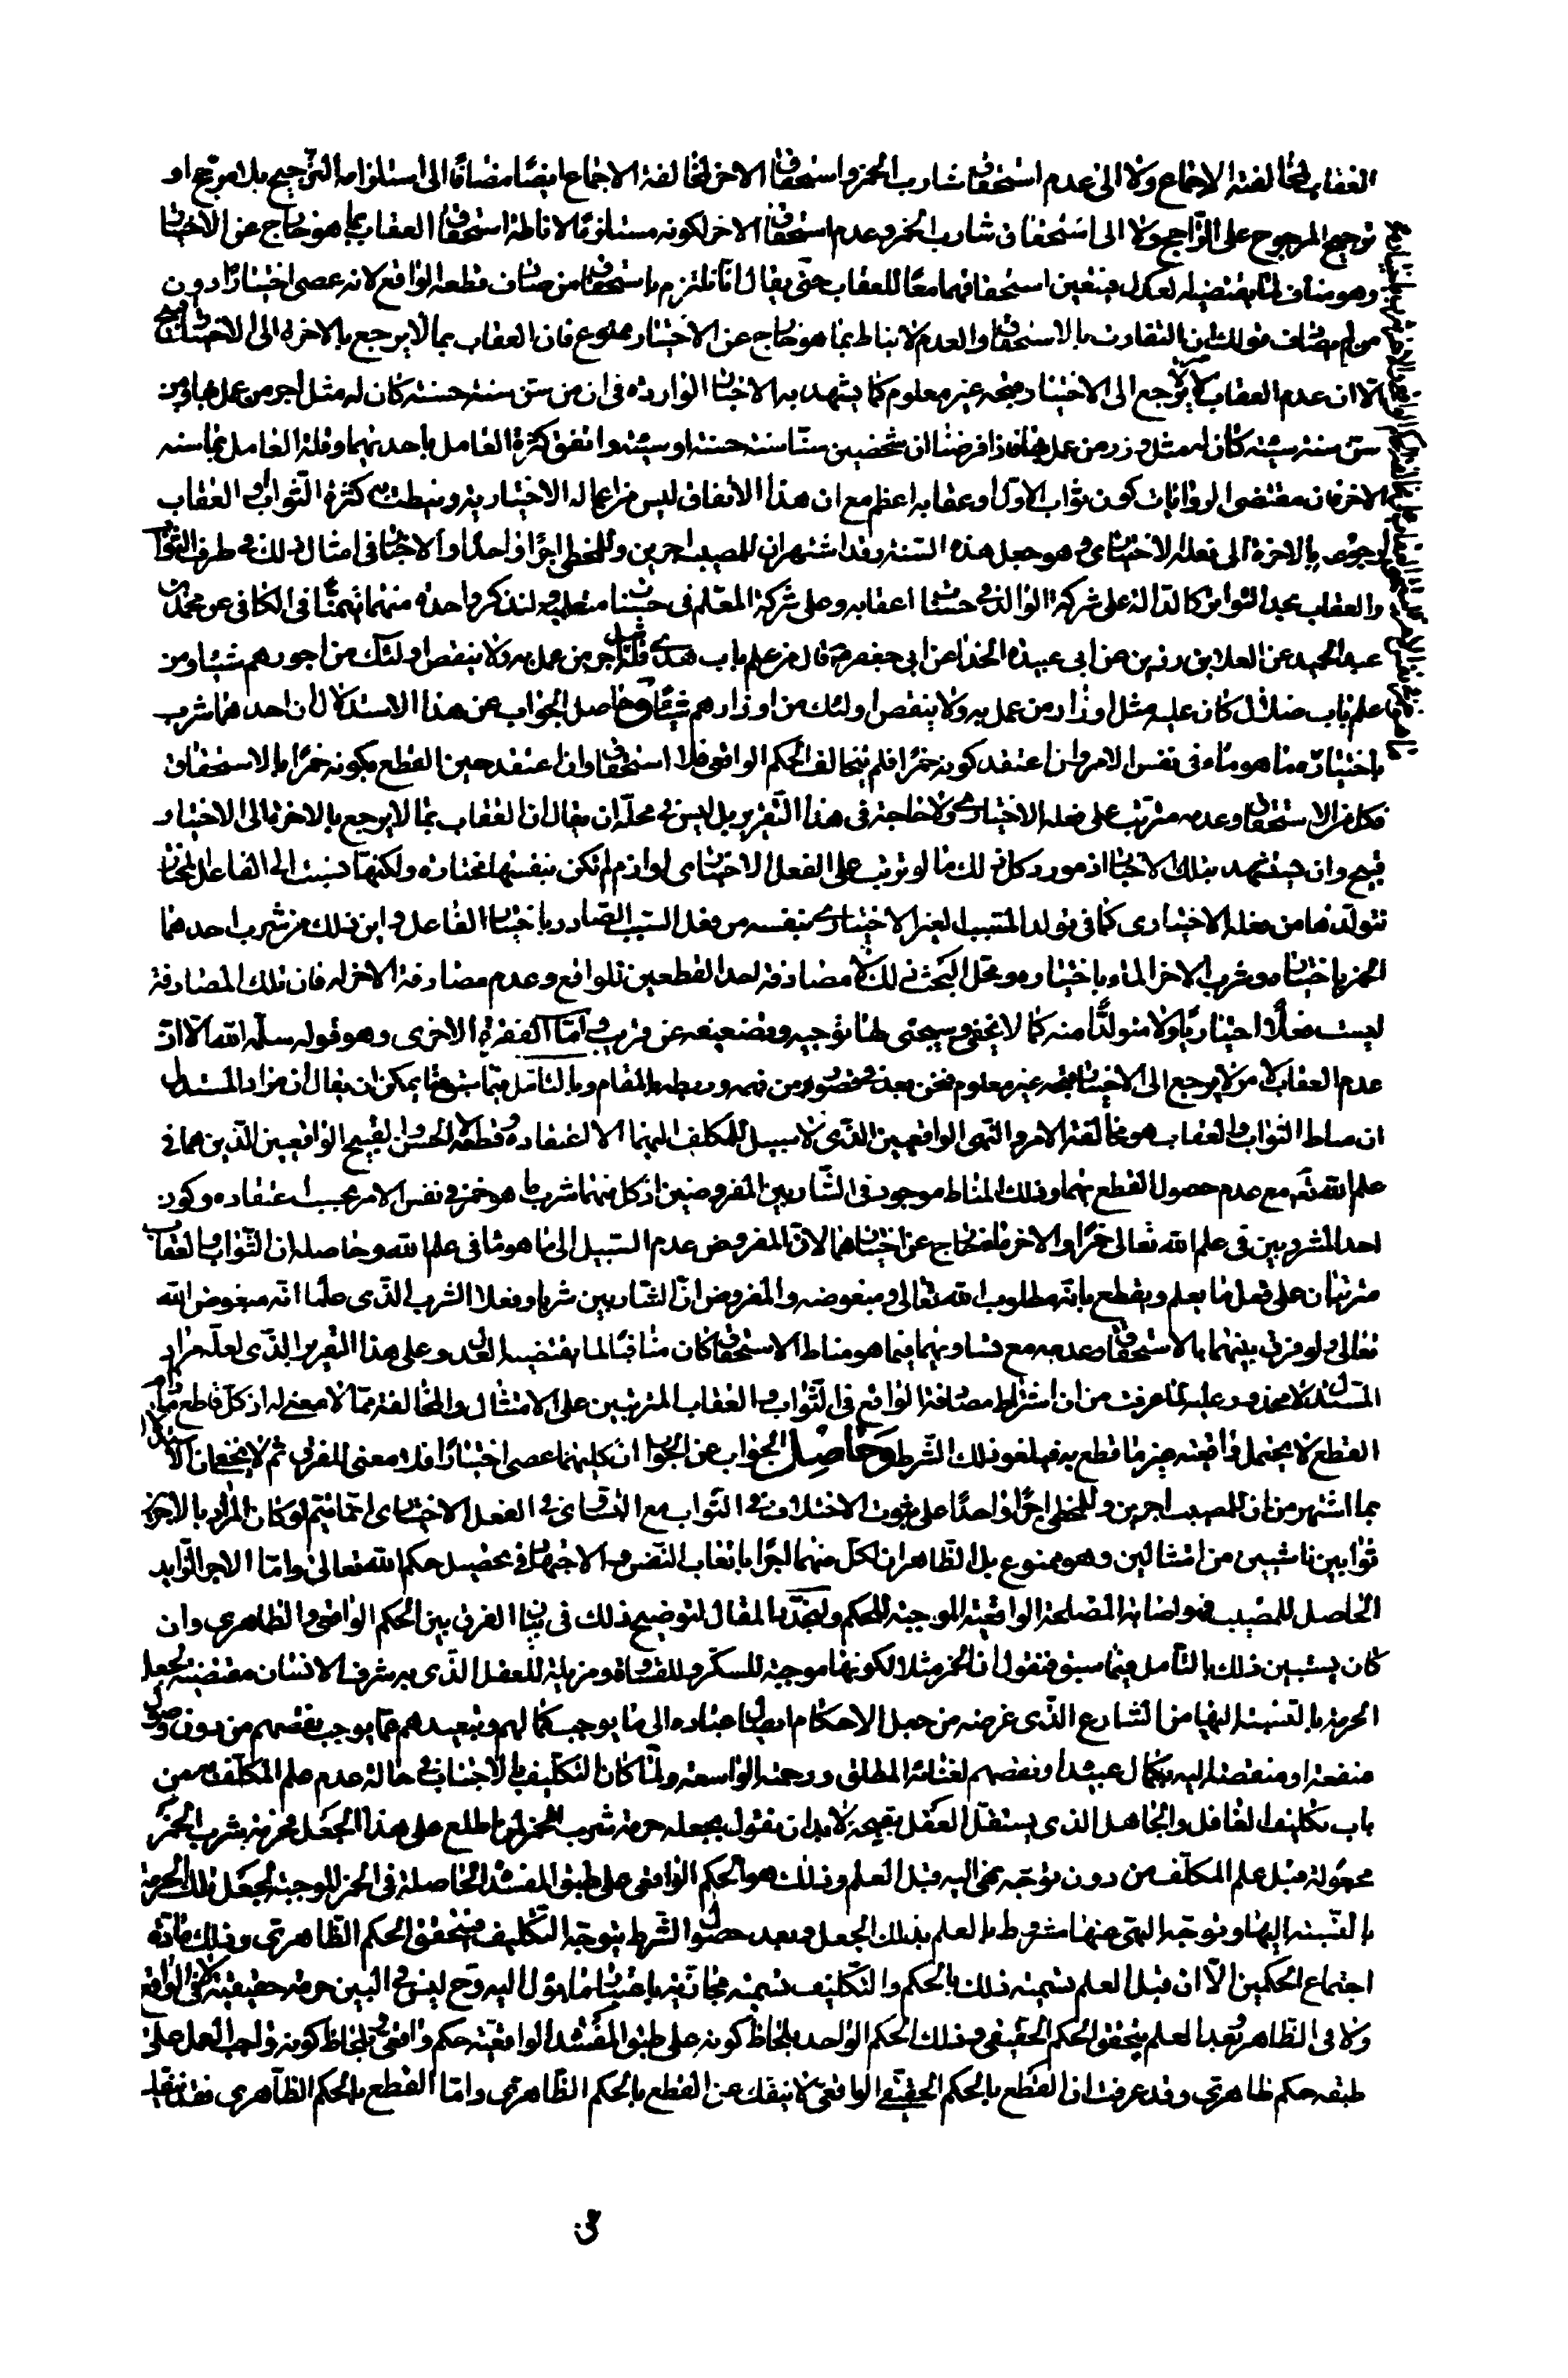 العقاب لمخالفته الاجماع ولا الى عدم استحقاق شارب الخمر واستحقاق الاخر لمخالفة الاجماع ايضا مضافا الى استلزامه الترجيح بلا مرجح او
ترجيح المرجوح على الراجح ولا الى استحقاق شارب الخمر وعدم استحقاق الاخر لكونه مستلزما لاناطة استحقاق العقاب بما هو خارج عن الاختيار
وهو مناف لما يقتضيه العدل فيتعين استحقاقهما معا للعقاب حتى يقال انا نلتزم باستحقاق من صادف قطعه الواقع لانه عصى اختيارا دون
من لم يصادف قولك ان التفاوت بالاستحقاق والعدم لا يناط بما هو خارج عن الاختيار ممنوع فان العقاب بما لا يرجع بالاخرة الى الاختيار قبيح
الا ان عدم العقاب لامر لا يرجع الى الاختيار قبحه غير معلوم كما يشهد به الاخبار الواردة في ان من سن سنة حسنة كان له مثل اجر من عمل بها ومن
سن سنة سيئة كان له مثل وزر من عمل بها فاذا فرضنا ان شخصين سنا سنة حسنة او سيئة واتفق كثرة العامل باحدهما وقلة العامل بما سنه
الاخر فان مقتضى الروايات كون ثواب الاول او عقابه اعظم مع ان هذا الاتفاق ليس من افعاله الاختيارية ونيطت به كثرة الثواب والعقاب
لرجوعه بالاخرة الى فعله الاختياري وهو جعل هذه السنة وقد اشتهر ان للمصيب اجرين وللمخطئ اجرا واحدا والاخبار في امثال ذلك في طرف الثواب
والعقاب بحد التواتر كالدالة على شركة الوالد في حسنات اعقابه وعلى شركة المعلم في حسنات متعلميه لنذكر واحدة منهما تيمنا في الكافي عن محمد بن
عبد الحميد عن العلاء بن رزين عن ابي عبيدة الحذاء عن ابي جعفر قال من علم باب هدى فله مثل اجر من عمل به ولا ينقص اولئك من اجورهم شيئا ومن
علم باب ضلال كان عليه مثل اوزار من عمل به ولا ينقص اولئك من اوزارهم شيئا وحاصل الجواب عن هذا الاستدلال ان احدهما شرب
باختياره ما هو ماء في نفس الامر وان اعتقد كونه خمرا فلم يخالف الحكم الواقعي فلا استحقاق وان اعتقد حين القطع بكونه خمرا بالاستحقاق
فكل من الاستحقاق وعدمه مترتب على فعله الاختياري ولا حاجة في هذا التقرير بل ليس في محله ان يقال ان العقاب بما لا يرجع بالاخرة الى الاختيار
قبيح وان يستشهد بتلك الاخبار اذ مورد كل ذلك ما لو ترتب على الفعل الاختياري لوازم لم تكن بنفسها مختارة ولكنها تنسب الى الفاعل المختار
لتولدها من فعله الاختياري كما في تولد المسبب الغير الاختياري بنفسه من فعل السبب الصادر باختيار الفاعل واين ذلك من شرب احدهما
الخمر باختياره وشرب الاخر الماء باختياره ومحل البحث في ذلك لا مصادفة احد القطعين للواقع وعدم مصادفة الاخر له فان تلك المصادفة
ليست فعلا اختياريا ولا متولدا منه كما لا يخفى وسيجئ لهذا توجيه وتضعيفه عن قريب واما الفقرة الاخرى وهو قوله سلمه الله الا ان
عدم العقاب لامر لا يرجع الى الاختيار قبحه غير معلوم فنحن بعد في قصور من فهمه وربطه بالمقام وبالتامل فيما يمكن ان يقال ان مراد المستدل
ان مناط الثواب والعقاب هو مخالفة الامر والنهي الواقعيين الذي لا سبيل للمكلف اليهما الا اعتقاده وقطعه لا الحسن والقبيح الواقعيين الذين هما في
علم الله تعالى مع عدم حصول القطع بهما وذلك المناط موجود في الشاربين المفروضين اذ كل منهما شرب ما هو خمر في نفس الامر بحسب اعتقاده وكون
احد المشروبين في علم الله تعالى خمرا والاخر ماء خارج عن اختيارهما لان المفروض عدم السبيل الى ما هو ما في علم الله وحاصله ان الثواب والعقاب
مترتبان على فعل ما يعلم ويقطع بانه مطلوب الله تعالى ومبغوضه والمفروض ان الشاربين شربا وفعلا الشرب الذي علما انه مبغوض الله
تعالى ولو فرق بينهما بالاستحقاق وعدمه مع تساويهما فيما هو مناط الاستحقاق كان منافيا لما يقتضيه العدل وعلى هذا التقرير الذي لعله مراد
المستدل لا محذور عليه لما عرفت من ان اشتراط مصادفة الواقع في الثواب والعقاب المترتبين على الامتثال والمخالفة مما لا معنى له اذ كل قاطع ما دام
القطع لا يحتمل واقعية غير ما قطع به فيلغو ذلك الشرط وحاصل الجواب عن الجواب ان كليهما عصى اختيارا فلا معنى للفرق ثم لا يخفى ان الاستدلال
بما اشتهر من ان للمصيب اجرين وللمخطئ اجرا واحدا على ثبوت الاختلاف في الثواب مع التساوي في الفعل الاختياري انما يتم لو كان المراد بالاجرين
ثوابين ناشيين من امتثالين وهو ممنوع بل الظاهر ان لكل منهما اجرا باتعاب النفس والاجتهاد في تحصيل حكم الله تعالى واما الاجر الزايد
الحاصل للمصيب فهو اصابة المصلحة الواقعية الموجبة للحكم ولنجدد المقال لتوضيح ذلك في بيان الفرق بين الحكم الواقعي والظاهري وان
كان يستبين ذلك بالتامل فيما سبق فنقول ان الخمر مثلا لكونها موجبة للسكر وللقساوة ومزيلة للعقل الذي به شرف الانسان مقتضية لجعل
الحرمة بالنسبة اليها من الشارع الذي غرضه من جعل الاحكام ايصال عباده الى ما يوجب كمالهم وتبعيدهم عما يوجب نقصهم من دون وصول
منفعة او منقصة اليه بكمال عبيده او نقصهم لغنائه المطلق ورحمته الواسعة ولما كان التكليف بالاجتناب في حالة عدم علم المكلف به من
باب تكليف الغافل والجاهل الذي يستقل العقل بقبحه لا بد ان نقول بجعله حرمة شرب الخمر لمن اطلع على هذا الجعل فحرمة شرب الخمر
مجعولة قبل علم المكلف من دون توجه نهي اليه قبل العلم وذلك هو الحكم الواقعي على طبق المفسدة الحاصلة في الخمر الموجبة لجعل تلك الحرمة
بالنسبة اليها وتوجه النهي عنها مشروط بالعلم بذلك الجعل وبعد حصول الشرط يتوجه التكليف فيتحقق الحكم الظاهري وذلك مادة
اجتماع الحكمين الا ان قبل العلم تسمية ذلك بالحكم والتكليف تسمية مجازية باعتبار ما يؤل اليه وح ليس في البين حرمة حقيقية لا في الواقع
ولا في الظاهر وبعد العلم يتحقق الحكم الحقيقي وذلك الحكم الواحد بلحاظ كونه على طبق المفسدة الواقعية حكم واقعي وبلحاظ كونه واجب العمل على
طبقه حكم ظاهري وقد عرفت ان القطع بالحكم الحقيقي الواقعي لا ينفك عن القطع بالحكم الظاهري واما القطع بالحكم الظاهري فقد ينفك